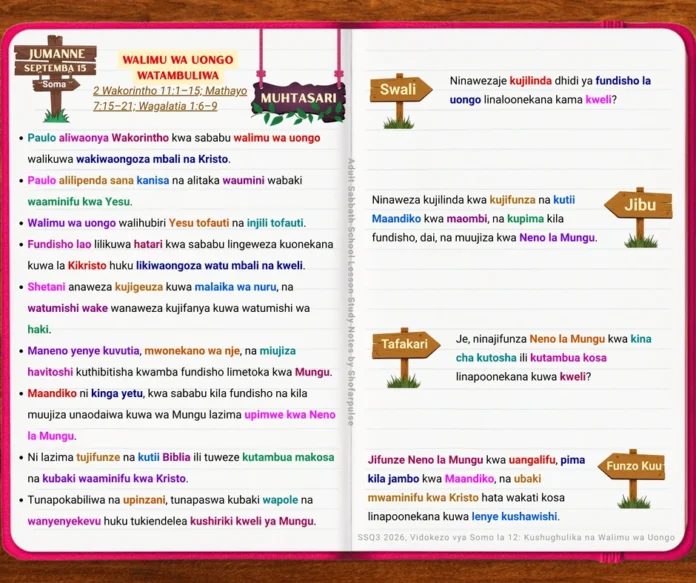 JUMANNE
SEPTEMBA 15
"Soma"
WALIMU WA UONGO
WATAMBULIWA
2 Wakorintho 11:1–15; Mathayo
7:15–21; Wagalatia 1:6–9
MUHTASARI
• Paulo aliwaonya Wakorintho kwa sababu walimu wa uongo
walikuwa wakiwaongoza mbali na Kristo.
• Paulo alilipenda sana kanisa na alitaka waumini wabaki
waaminifu kwa Yesu.
• Walimu wa uongo walihubiri Yesu tofauti na injili tofauti.
• Fundisho lao lilikuwa hatari kwa sababu lingeweza kuonekana
kuwa la Kikristo huku likiwaongoza watu mbali na kweli.
• Shetani anaweza kujigeuza kuwa malaika wa nuru, na
watumishi wake wanaweza kujifanya kuwa watumishi wa
haki.
• Maneno yenye kuvutia, mwonekano wa nje, na miujiza
havitoshi kuthibitisha kwamba fundisho limetoka kwa Mungu.
• Maandiko ni kinga yetu, kwa sababu kila fundisho na kila
muujiza unaodaiwa kuwa wa Mungu lazima upimwe kwa Neno
la Mungu.
• Ni lazima tujifunze na kutii Biblia ili tuweze kutambua makosa
na kubaki waaminifu kwa Kristo.
• Tunapokabiliwa na upinzani, tunapaswa kubaki wapole na
wanyenyekevu huku tukiendelea kushiriki kweli ya Mungu.
Adult Sabbath School Lesson Study Notes by Shofarpulse
Swali
Ninawezaje kujilinda dhidi ya fundisho la
uongo linaloonekana kama kweli?
Ninaweza kujilinda kwa kujifunza na kutii
Maandiko kwa maombi, na kupima kila
fundisho, dai, na muujiza kwa Neno la Mungu.
Jibu
Tafakari
Je, ninajifunza Neno la Mungu kwa kina
cha kutosha ili kutambua kosa
linapoonekana kuwa kweli?
Jifunze Neno la Mungu kwa uangalifu, pima
kila jambo kwa Maandiko, na ubaki
mwaminifu kwa Kristo hata wakati kosa
linapoonekana kuwa lenye kushawishi.
Funzo Kuu
SSQ3 2026, Vidokezo vya Somo la 12: Kushughulika na Walimu wa Uongo